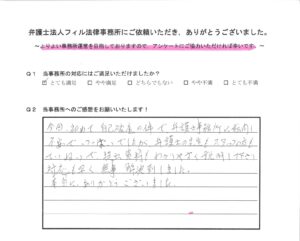 弁護士法人フィル法律事務所にご依頼いただき、ありがとうございました。
～よりよい事務所運営を目指しておりますので、アンケートにご協力いただければ幸いです。～
Q1 当事務所の対応にはご満足いただけましたか?
☑ とても満足 □ やや満足 □ どちらでもない □ やや不満 □ とても不満
Q2 当事務所へのご感想をお願いいたします!
今回、初めて自己破産の件で弁護士事務所に
弁護士の先生、スタッフの方
ていねいで、提出資料もわかりやすく説明して下さり
対応も早く無事解決しました。
本当にありがとうございました。